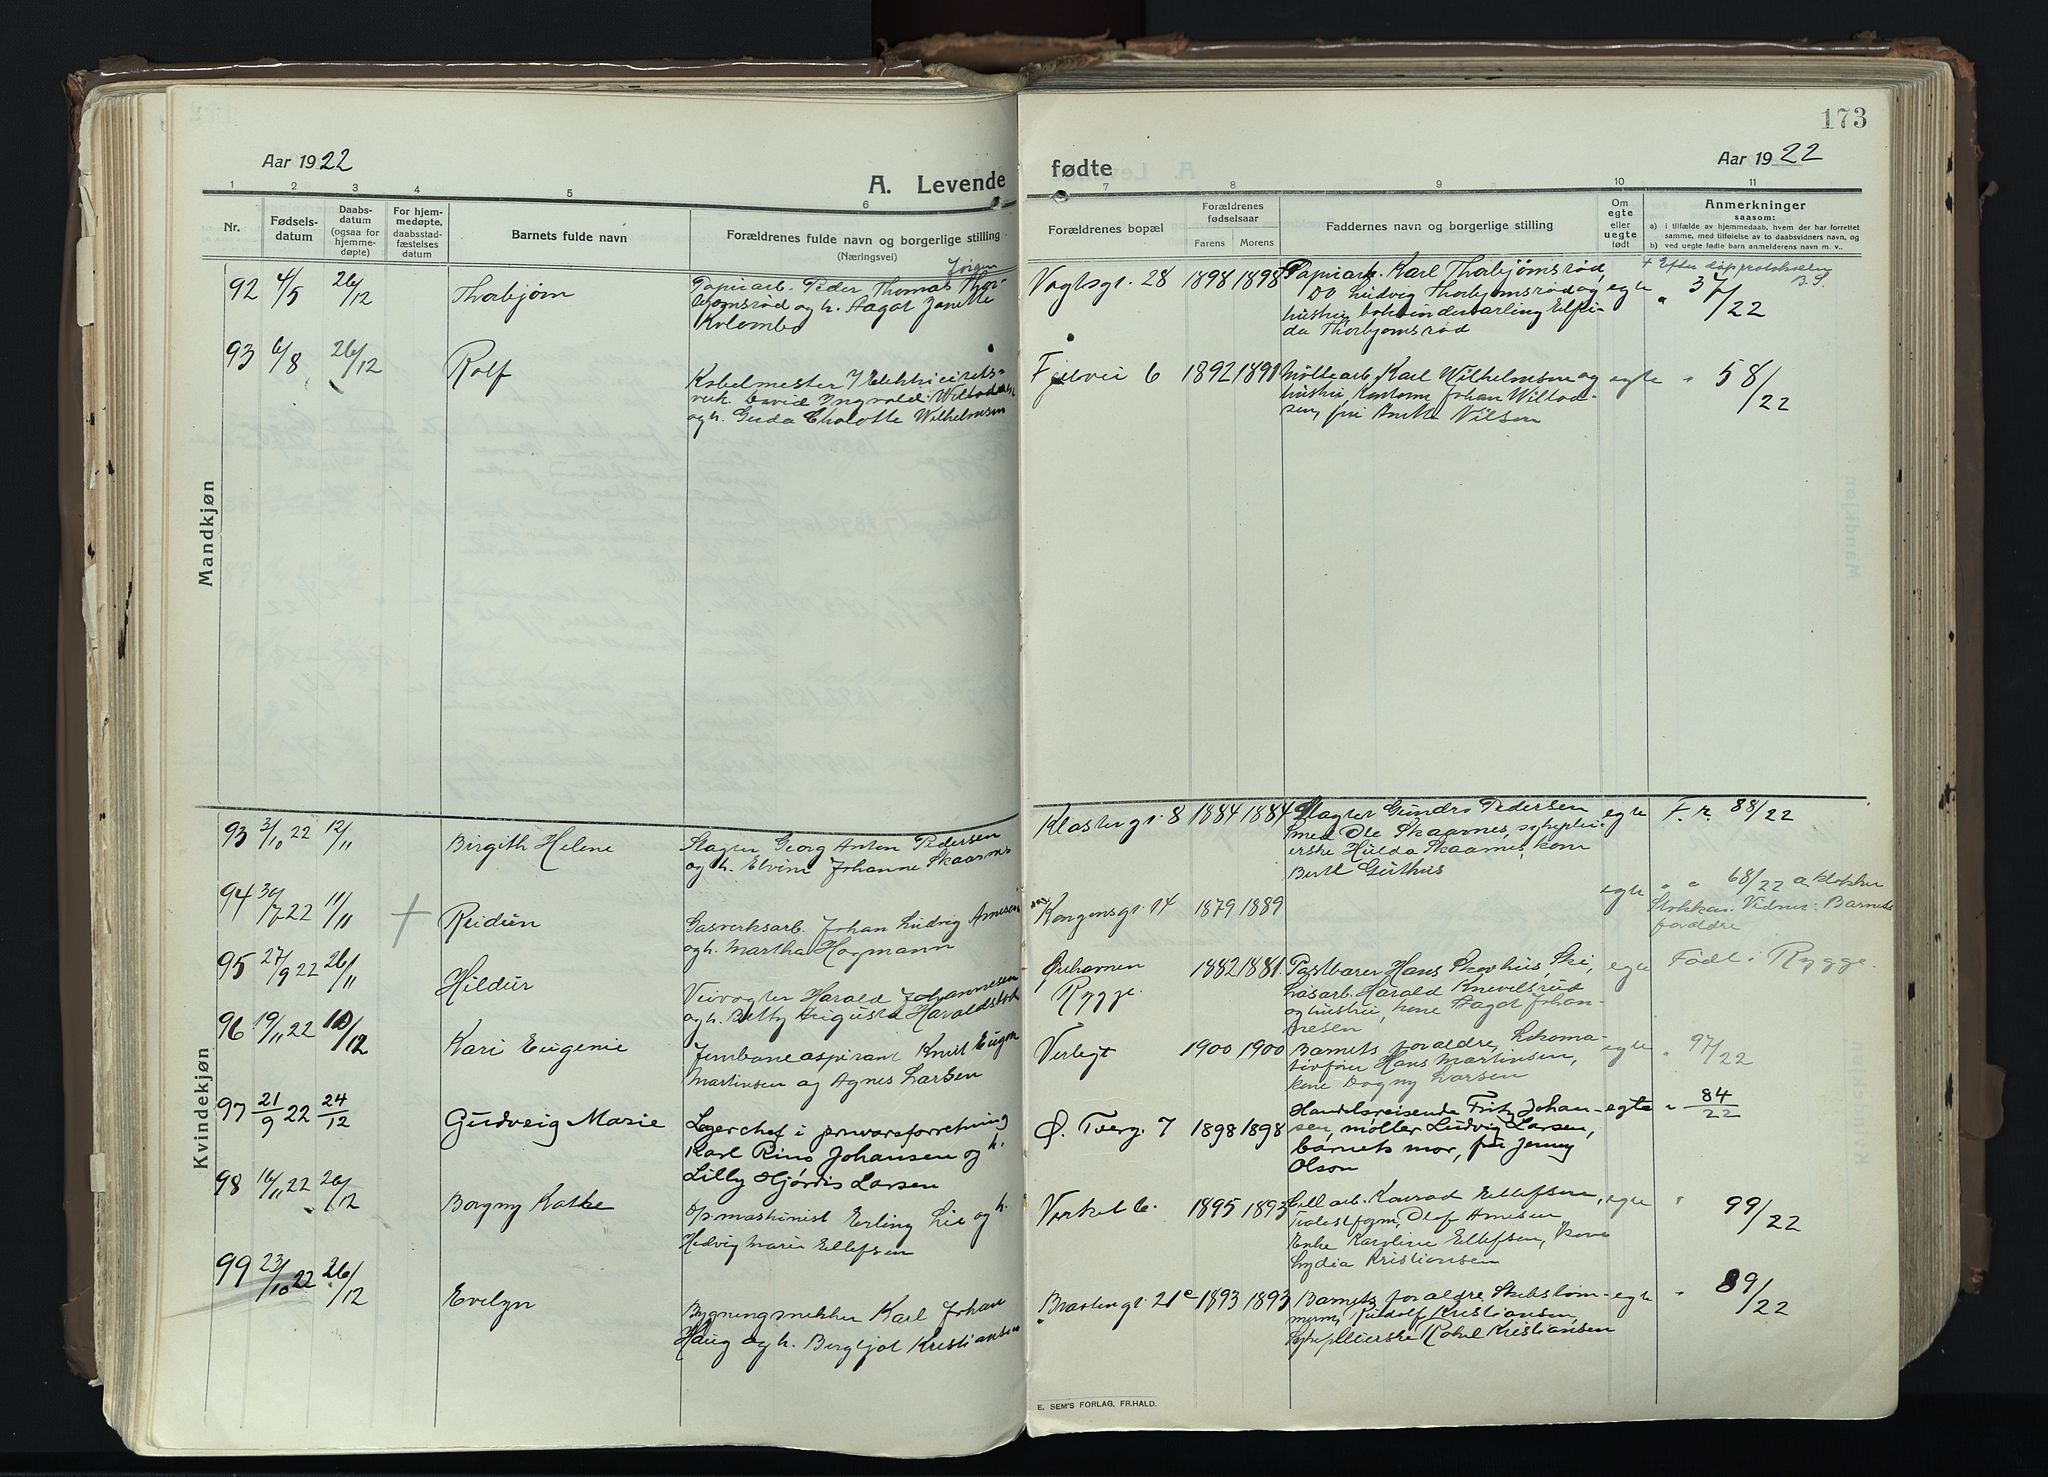 173
Aar 1922
A. Levende
fødte
Aar 1922
1 2 3 4 5 6 7 8 9 10 11
Nr.
Fødsels-
datum
Daabs-
datum
(ogsaa for
hjemme-
døpte)
For hjem-
medøpte,
daabsstad-
fæstelses
datum
Barnets fulde navn
Forældrenes fulde navn og borgerlige stilling
(Næringsvei)
Forældrenes bopæl
Forældrenes
fødselsaar
Farens Morens
Faddernes navn og borgerlige stilling
Om
egte
eller
uegte
født
Anmerkninger
saasom:
a) i tilfælde av hjemmedaab, hvem der har forrettet
samme, med tilføielse av to daabsvidners navn, og
b) ved uegte fødte barn anmelderens navn m. v.
Mandkjøn
92 4/5 26/12 Thorbjørn
Jørgen
Papirarb. Peder Thomas Thor-
bjørnsrød og h. Aagot Janette
Kolombo
Vogtsgt. 28 1898 1898
Papirarb. Karl Thorbjørnsrød,
Do Ludvig Thorbjørnsrød og
hustru, bokbinderlærling Elfri-
da Thorbjørnsrød
egte
+ Efter døpprotokollen
B.S.
" 37/22
93 6/8 26/12 Rolf
Kabelmester v/ Elektricitets-
verk. David Ingvald
og h. Gerda Charlotte Wilhelmsen
6 1892 1891
Møllearb. Karl Wilhelmsen og
hustru, Kontorm. Johan
sen, frk. Nilsen
egte " 58/22
Kvindekjøn
93 3/10 22 12/11 Birgith Helene
Slagter Georg Anton Pedersen
og h. Elvine Johanne Skaarnes
Klostergt. 8 1884 1884
Slagter Gundro Pedersen
Smed Ole Skaarnes, syerske
Hulda Skaarnes, kone
Berth Guthus
egte F. r. 88/22
94 30/7 22 11/11 + Reidun
Gasverksarb. Johan Ludvig Arnesen
og h. Martha Hagmann
Kongensgt. 14 1879 1889
egte " " 68/22 a klokker
Stokkan. Vidner: Barnets
forældre
95 27/9 22 26/11 Hildur
Veivogter Harald Johannesen
og h. Betty Augusta Haraldstad
Ørehavnen
Rygge. 1882 1881
Postbærer Hans Skovhus, Ski,
Løsarb. Harald Knevelsrud
og hustru, kone Aagot Johan-
nesen
egte Født i Rygge.
96 19/11 22 10/12 Kari Eugenie
Jernbaneaspirant Knut Eugen
Martinsen og Agnes Larsen
Verlegt 1900 1900
Barnets forældre, Lokomo-
tivfører Hans Martinsen,
kone Dagny Larsen
egte " 97/22
97 21/9 22 24/12 Gudveig Marie
Lagerchef i jernvareforretning
Karl Rino Johansen og h.
Lilly Hjørdis Larsen
Ø. Tverg. 7 1898 1898
Handelsreisende Fritz Johan-
sen, møller Ludvig Larsen,
barnets mor, frk Jenny
Olson
egte " 84/22
98 16/11 22 26/12 Borgny Kathe
Maskinist Erling Lie og h.
Hedvig Marie Ellefsen
6. 1895 1893
Cell. arb. Konrad Ellefsen,
Olaf Arnesen
Enke Karoline Ellefsen, kone
Lydia Kristiansen
egte " 99/22
99 23/10 22 26/12 Evelyn
Bygningsnekker Karl Johan
Haug og h. Bergljot Kristiansen
21c 1893 1893
Barnets forældre, Skibstøm-
merm. Rudolf Kristiansen,
Rakel Kristiansen
egte " 89/22
E. SEM'S FORLAG, FR.HALD.